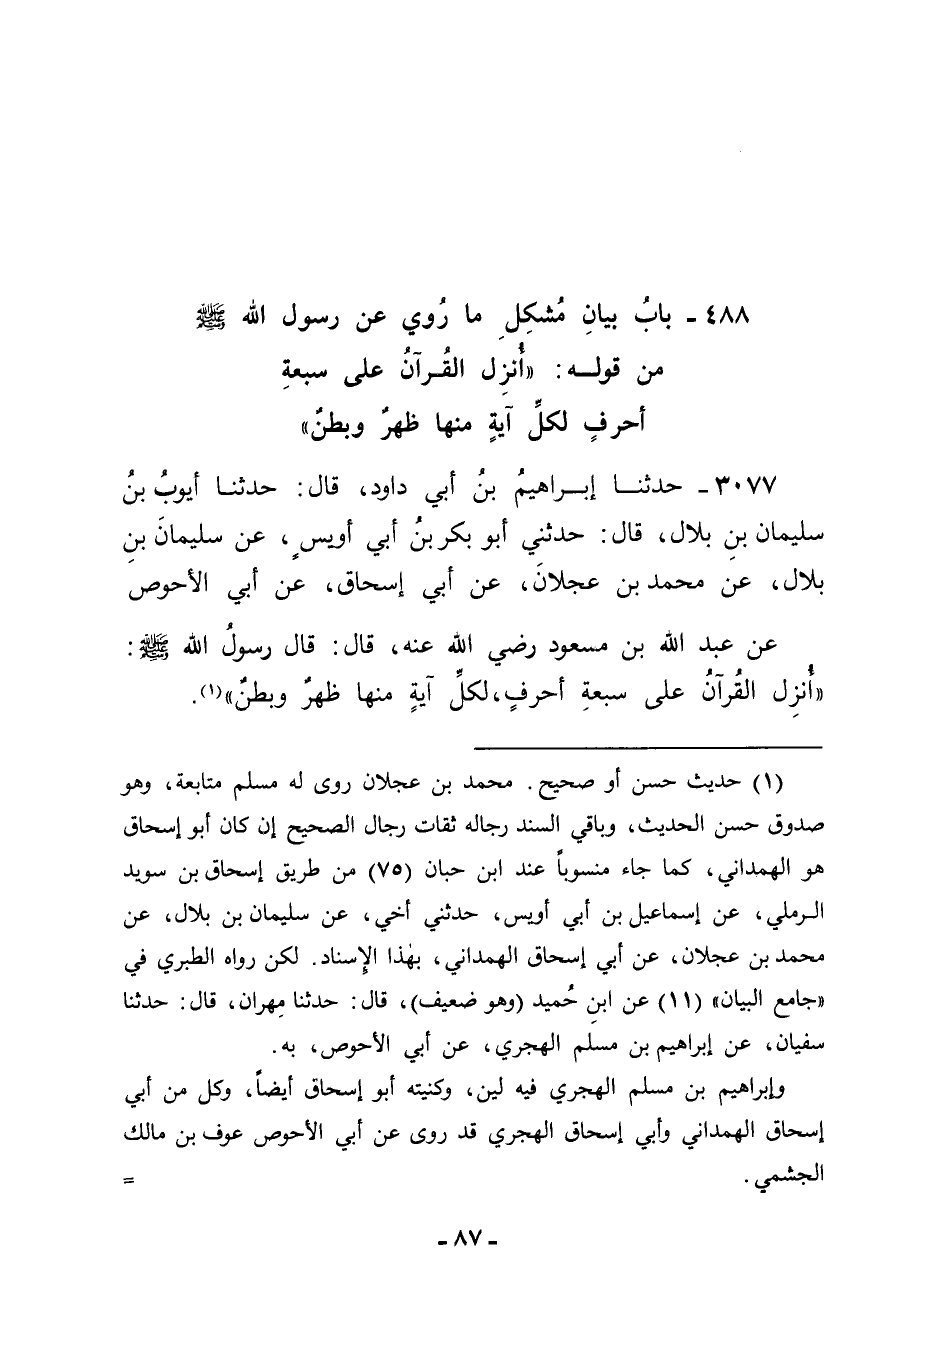 ٤٨٨ - بابُ بيانِ مُشكِلِ ما رُوي عن رسول الله ﷺ
من قولـه: «أُنزِل القُـرآنُ على سبعةِ
أحرفٍ لكلِّ آيةٍ منها ظهرٌ وبطنٌ»
٣٠٧٧ - حدثنـا إبـراهيمُ بنُ أبي داود، قال: حدثنـا أيوبُ بنُ
سليمان بنِ بلال، قال: حدثني أبو بكر بنُ أبي أويسٍ، عن سليمانَ بنِ
بلال، عن محمد بن عجلانَ، عن أبي إسحاق، عن أبي الأحوص
عن عبد الله بن مسعود رضي الله عنه، قال: قال رسولُ الله ﷺ:
«أُنزِل القُرآنُ على سبعةِ أحرفٍ، لكلِّ آيةٍ منها ظهرٌ وبطنٌ»(١).
(١) حديث حسن أو صحيح. محمد بن عجلان روى له مسلم متابعة، وهو
صدوق حسن الحديث، وباقي السند رجاله ثقات رجال الصحيح إن كان أبو إسحاق
هو الهمداني، كما جاء منسوباً عند ابن حبان (٧٥) من طريق إسحاق بن سويد
الـرملي، عن إسماعيل بن أبي أويس، حدثني أخي، عن سليمان بن بلال، عن
محمد بن عجلان، عن أبي إسحاق الهمداني، بهٰذا الإِسناد. لكن رواه الطبري في
«جامع البيان» (١١) عن ابنِ حُميد (وهو ضعيف)، قال: حدثنا مِهران، قال: حدثنا
سفيان، عن إبراهيم بن مسلم الهجري، عن أبي الأحوص، به.
وإبراهيم بن مسلم الهجري فيه لين، وكنيته أبو إسحاق أيضاً، وكل من أبي
إسحاق الهمداني وأبي إسحاق الهجري قد روى عن أبي الأحوص عوف بن مالك
الجشمي. =
- ٨٧ -